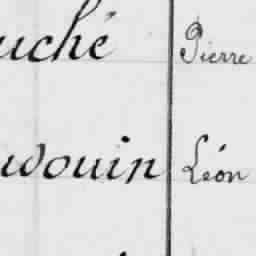 uché Pierre
douin Léon